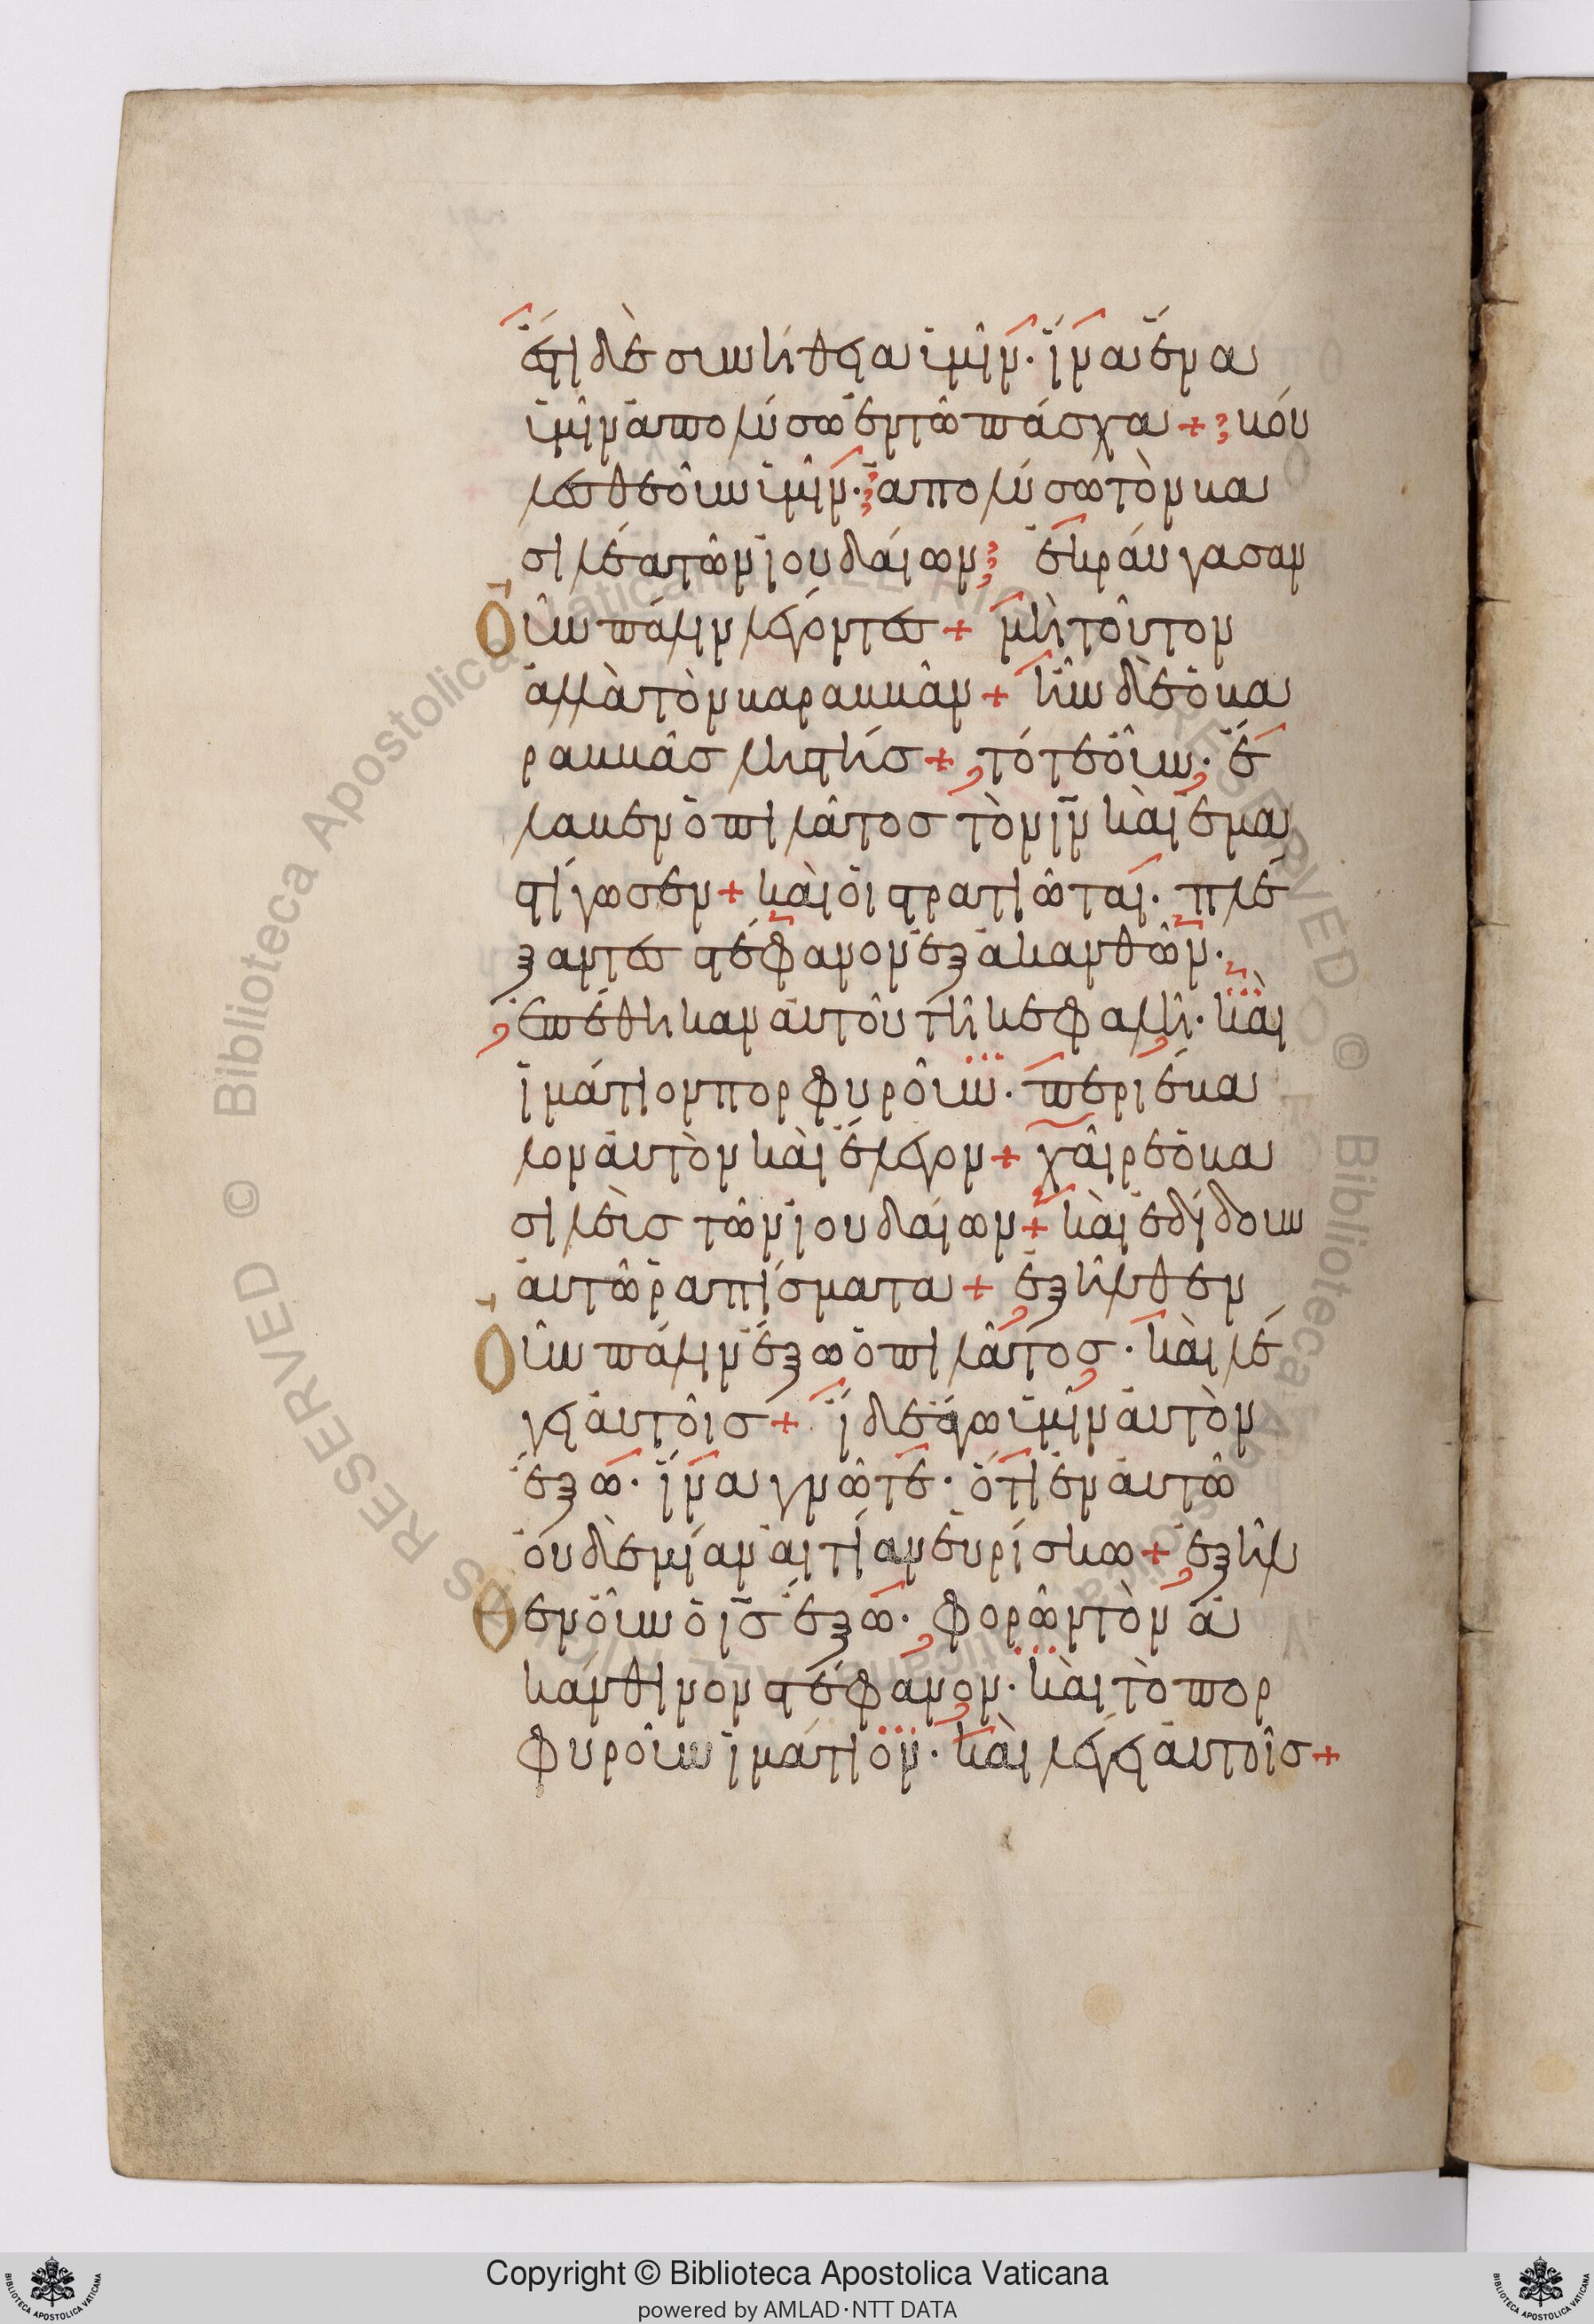 ἔστι δὲ συνήθεια ὑμῖν· ἵνα ἕνα
ὑμῖν ἀπολύσω ἐν τῶ πάσχα + βού
λεσθε οὖν ὑμῖν· ἀπολύσω τὸν βα
σιλέα τῶν ἰουδαίων; ἐκράυγασαν
Οὖν πάλιν λέγοντες + μὴ τοῦτον
ἀλλὰ τὸν βαραββᾶν + ἦν δὲ ὁ βα
ραββᾶς ληστής + τότε οὖν· ἔ
λαβεν ὁ πιλᾶτος τὸν ιν̅ καὶ ἐμα
στίγωσεν + καὶ οἱ στρατιῶται· πλέ
ξαντες στέφανον ἐξ ἀκανθῶν·
ἐπέθηκαν ἀυτοῦ τῆ κεφαλῆ· καὶ
ἱμάτιον πορφυροῦν· περιέβα
λον ἀυτὸν καὶ ἔλεγον + χαῖρε ὁ βα
σιλεὺς τῶν ἰουδαίων + καὶ ἐδίδουν
ἀυτῶ ῥαπίσματα + ἐξῆλθεν
Οὖν πάλιν ἔξω ὁ πιλᾶτος· καὶ λέ
γει ἀυτοῖς + ἴδε ἄγω ὑμῖν ἀυτὸν
ἔξω· ἵνα γνῶτε· ὅτι ἐν ἀυτῶ
ὀυδεμίαν αἰτίαν ἑυρίσκω + ἐξῆλ
Θεν οὖν ὁ ις̅ ἔξω· φορῶν τὸν ἀ
κάνθινον στέφανον· καὶ τὸ πορ
φυροῦν ἱμάτιον· καὶ λέγει ἀυτοῖς +
Copyright © Biblioteca Apostolica Vaticana
powered by AMLAD·NTT DATA